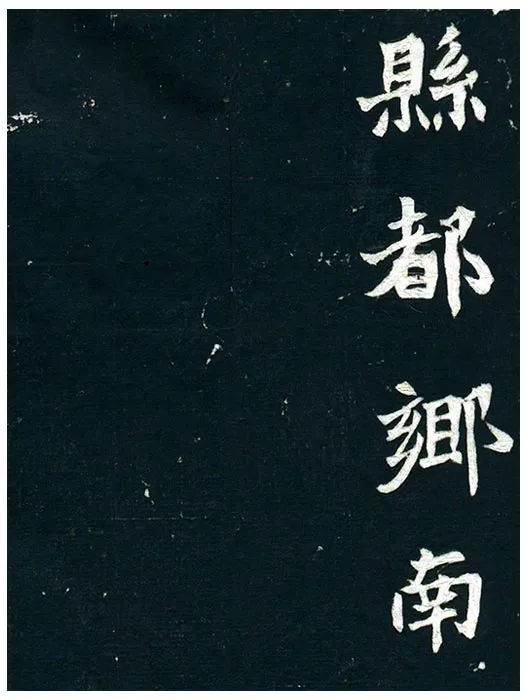 縣都鄉南